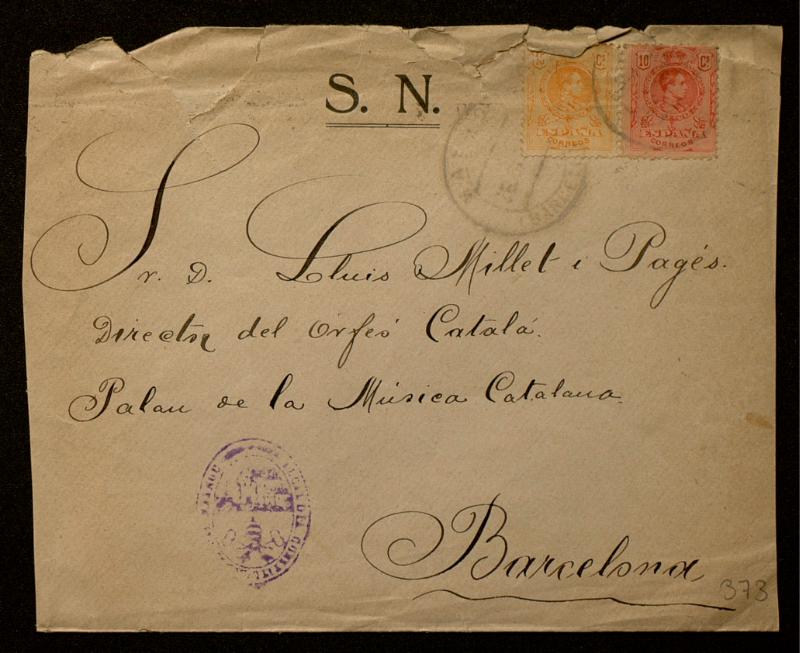 S. N.
10 Cs
ESPAÑA
CORREOS
ESPAÑA
CORREOS
Sr. D. Lluis Millet i Pagés.
Director del Orfeó Catalá.
Palau de la Música Catalana
Barcelona
373